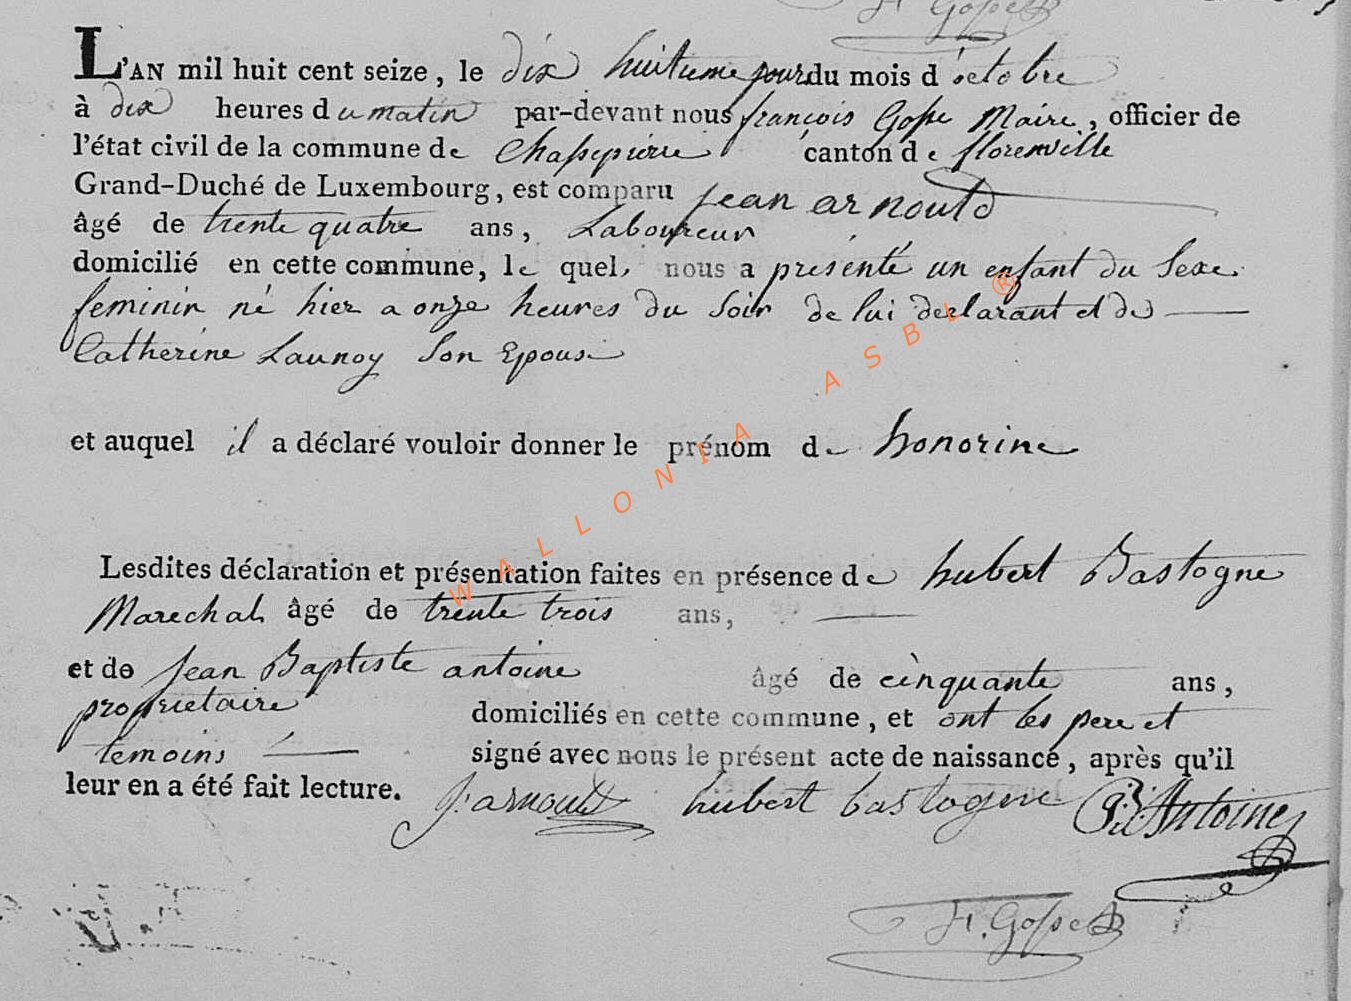 H. Gosse
L'AN mil huit cent seize, le dix huitieme jour du mois d'octobre
à dix heures du matin par-devant nous françois Gosse Maire, officier de
l'état civil de la commune de Chassepierre canton de florenville
Grand-Duché de Luxembourg, est comparu jean arnould
âgé de trente quatre ans, Laboureur
domicilié en cette commune, le quel, nous a présenté un enfant du Sexe
feminin né hier a onze heures du Soir de lui declarant et de
Catherine Launoy Son Epouse
et auquel il a déclaré vouloir donner le prénom de honorine
Lesdites déclaration et présentation faites en présence de hubert Bastogne
Marechal âgé de trente trois ans,
et de Jean Baptiste antoine âgé de cinquante ans,
proprietaire domiciliés en cette commune, et ont les pere et
temoins signé avec nous le présent acte de naissance, après qu'il
leur en a été fait lecture. J. arnould hubert bastogne J:B: Antoine
H. Gosse
WALLONIA ASBL ®